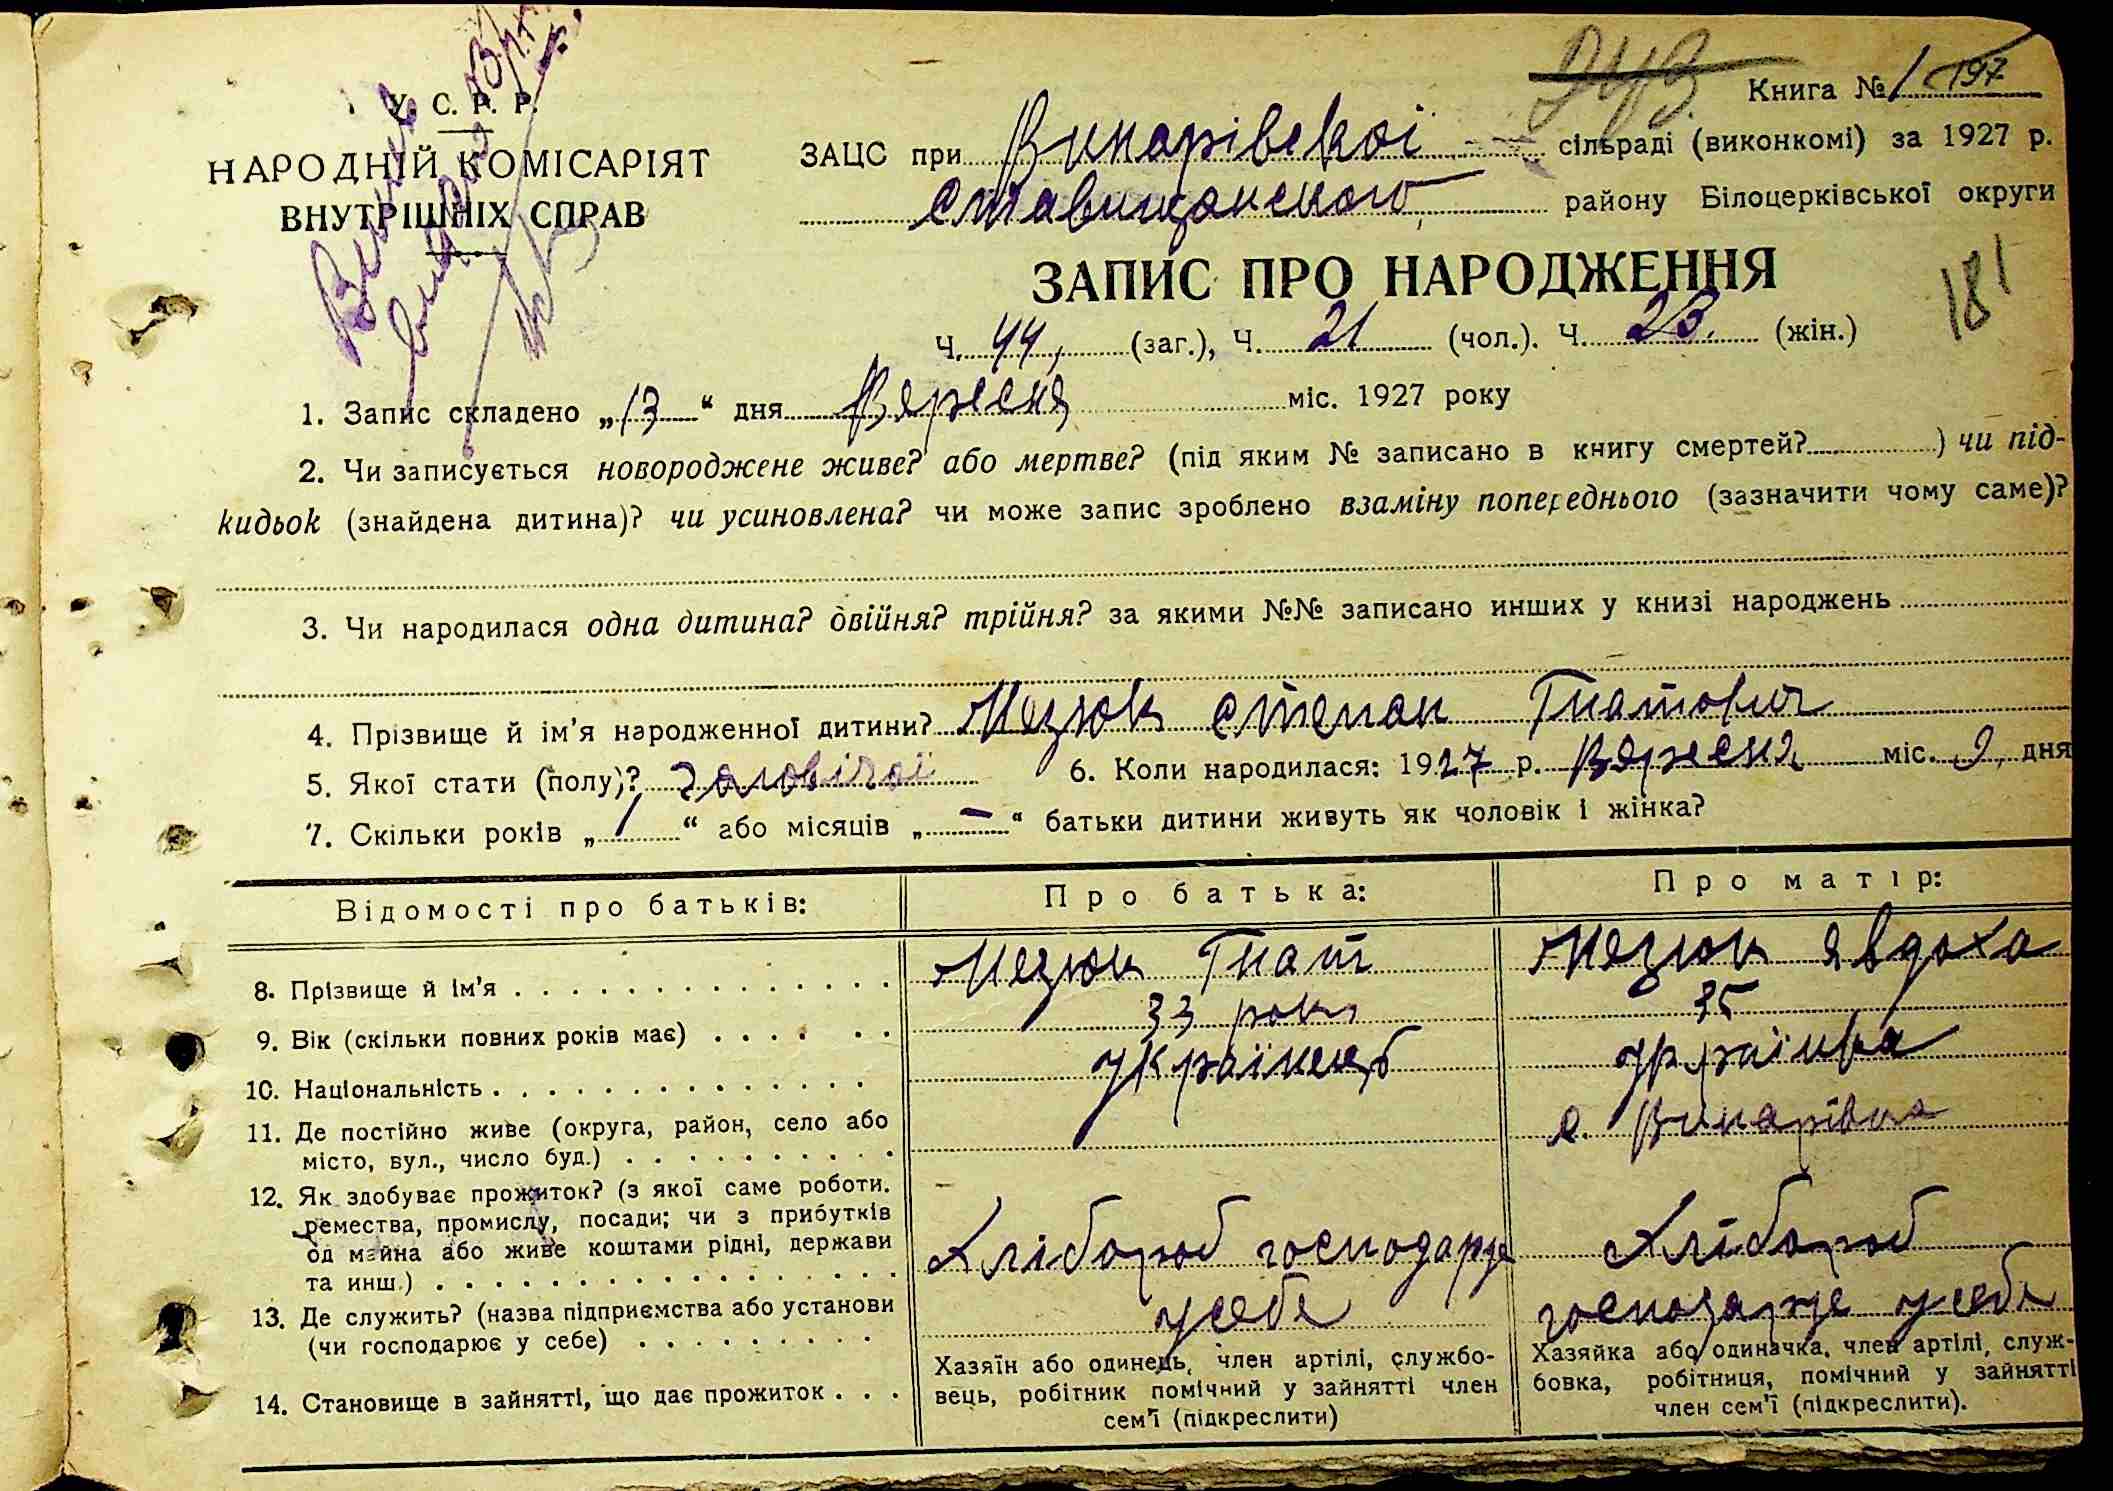 У. С. Р. Р.
НАРОДНІЙ КОМІСАРІЯТ
ВНУТРІШНІХ СПРАВ
243
Книга № 1 197
ЗАЦС при Винарівскої сільраді (виконкомі) за 1927 р.
Ставищанского району Білоцерківської округи
ЗАПИС ПРО НАРОДЖЕННЯ
181
Ч. 44, (заг.), Ч. 21 (чол.). Ч. 23. (жін.)
1. Запис складено „13“ дня Вересня міс. 1927 року
2. Чи записується новороджене живе? або мертве? (під яким № записано в книгу смертей?) чи під-
кидьок (знайдена дитина)? чи усиновлена? чи може запис зроблено взаміну попереднього (зазначити чому саме)?
3. Чи народилася одна дитина? двійня? трійня? за якими №№ записано инших у книзі народжень
4. Прізвище й ім’я народженної дитини? Мезюк Степан Гнатович
5. Якої стати (полу)? Чоловічої 6. Коли народилася: 1927 р. Вересня міс. 9 дня
7. Скільки років „1“ або місяців „—“ батьки дитини живуть як чоловік і жінка?
Відомості про батьків: Про батька: Про матір:
8. Прізвище й ім’я Мезюк Гнат Мезюк Явдоха
9. Вік (скільки повних років має) 33 роки 35
10. Національність українець українка
11. Де постійно живе (округа, район, село або
місто, вул., число буд.) с. Винарівка
12. Як здобуває прожиток? (з якої саме роботи.
ремества, промислу, посади; чи з прибутків
од майна або живе коштами рідні, держави
та инш.) Хлібороб господарує Хлібороб
13. Де служить? (назва підприємства або установи
(чи господарює у себе) у себе господарує у себе
14. Становище в зайнятті, що дає прожиток
Хазяїн або одинець, член артілі, службо-
вець, робітник помічний у зайнятті член
сем’ї (підкреслити)
Хазяйка або одиначка, член артілі, служ-
бовка, робітниця, помічний у зайнятті
член сем’ї (підкреслити).